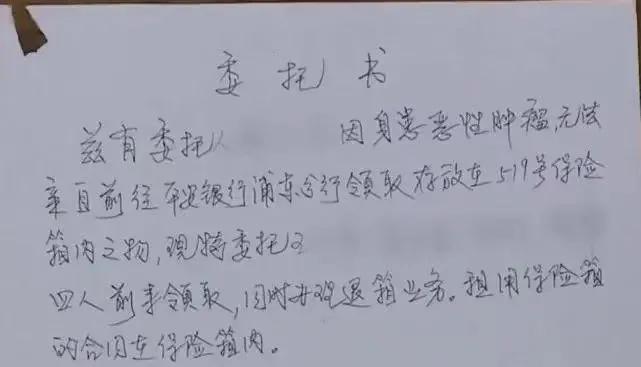 委托书
兹有委托 因身患恶性肿瘤,无法
亲自前往平安银行浦东分行领取存放在519号保险
箱内之物,现特委托
四人前来领取,同时办理退箱业务。租用保险箱
的合同在保险箱内。